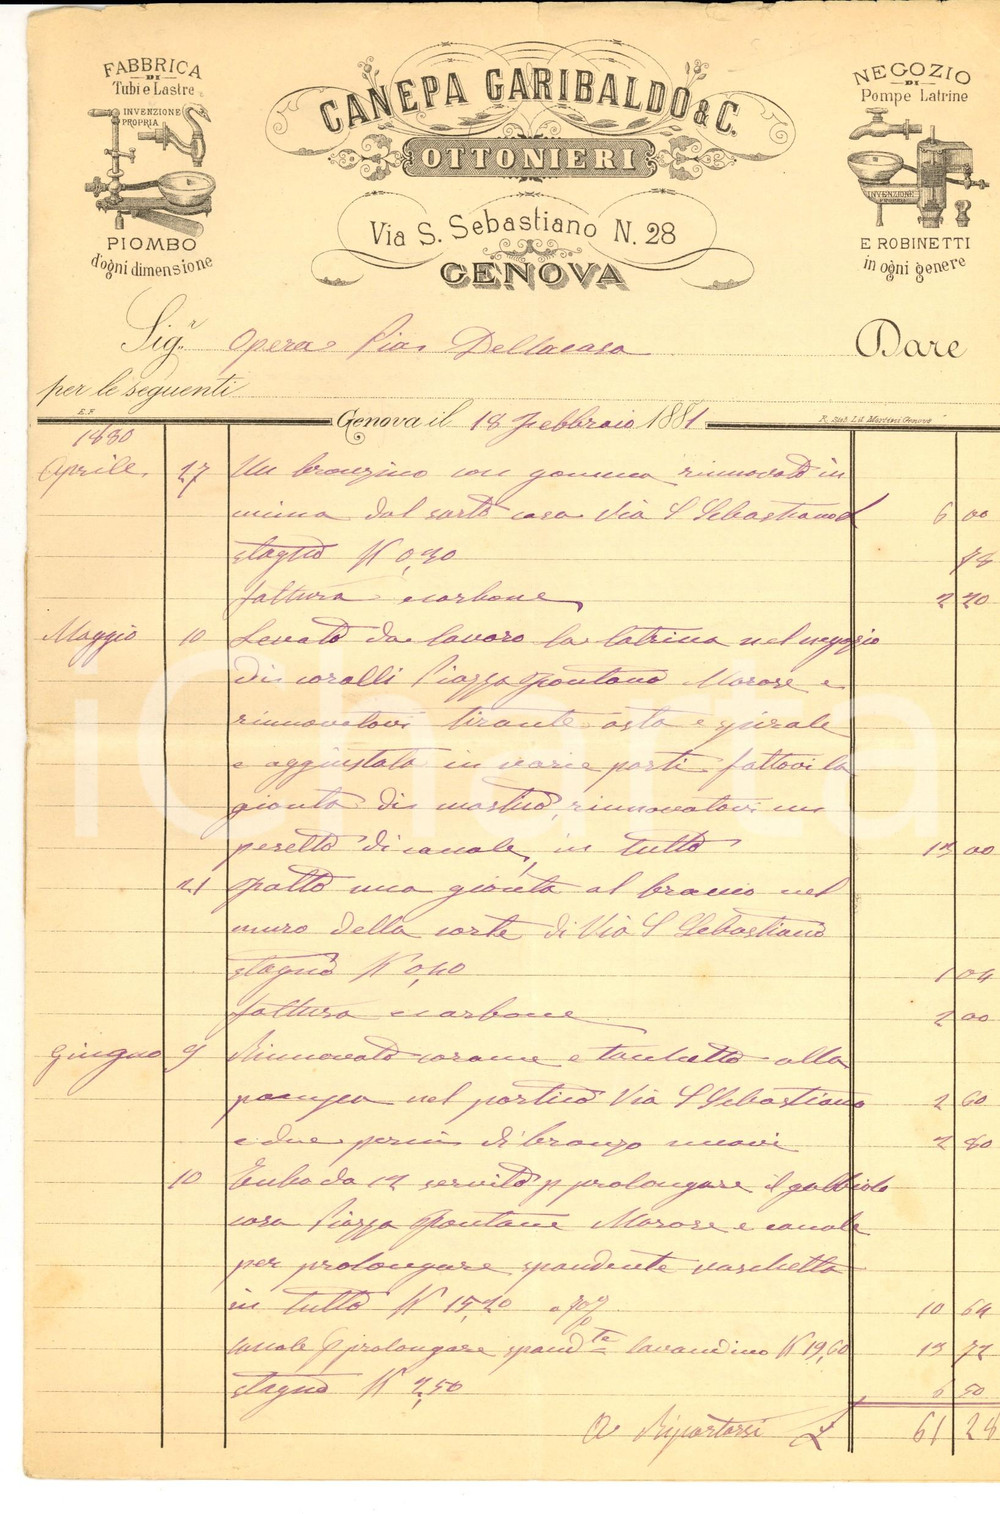 FABBRICA
DI
Tubi e Lastre
INVENZIONE
PROPRIA
PIOMBO
d'ogni dimensione
CANEPA GARIBALDO & C.
OTTONIERI
Via S. Sebastiano N. 28
GENOVA
NEGOZIO
DI
Pompe Latrine
INVENZIONE
E ROBINETTI
in ogni genere
Sig.r Opera Pia Dellacasa Dare
per le seguenti
E.F.
Genova il 18 Febbraio 1881
1880
Aprile 27 Un bronzino con gomma rinnovato in
mima dal sarto casa Via S Sebastiano £ 6 00
stagno K 0,30 78
fattura e carbone 2 20
Maggio 10 Levato da lavoro la latrina nel negozio
di coralli Piazza Fontane Marose e
rinnovatovi tirante asta e spirale
e aggiustata in varie parti fattovi la
gionta di mastice, rinnovatovi un
pesetto di canale, in tutto 13 00
21 Fatto una gionta al braccio nel
muro della corte di Via S Sebastiano
stagno K 0,40 1 04
fattura e carbone 2 00
Giugno 9 Rinnovato corame e tacchetto alla
pompa nel portico Via S Sebastiano 2 60
e due perni di bronzo nuovi 2 80
10 Tubo da 12 servito p prolongare il gabbiolo
casa Piazza Fontane Marose e canale
per prolongare spandente vaschetta
in tutto K 15,20 a 70% 10 64
canale p prolongare spand.te lavandino K 19,60 13 72
stagno K 2,50 6 50
A Riportarsi £ 61 28
iCharta